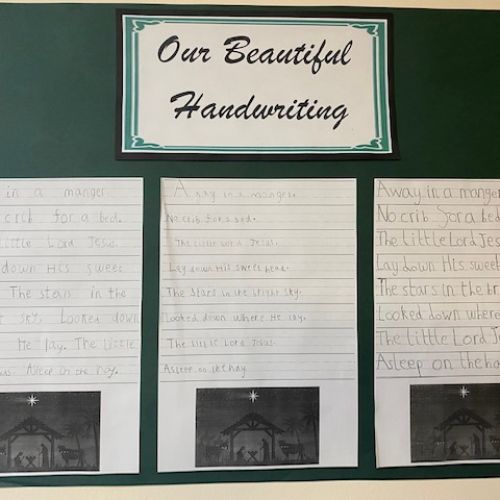 Our Beautiful
Handwriting
in a manger.
crib for a bed.
Little Lord Jesus.
down His sweet
The stars in the
sky. Looked down
He lay. The Little
Asleep on the hay.
Away in a manger.
No crib for a bed.
The little Lord Jesus.
Lay down His sweet head.
The stars in the bright sky.
Looked down where He lay.
The little Lord Jesus.
Asleep on the hay
Away in a manger
No crib for a bed
The Little Lord Jes
Lay down His sweet
The stars in the br
Looked down where
The little Lord Je
Asleep on the ha